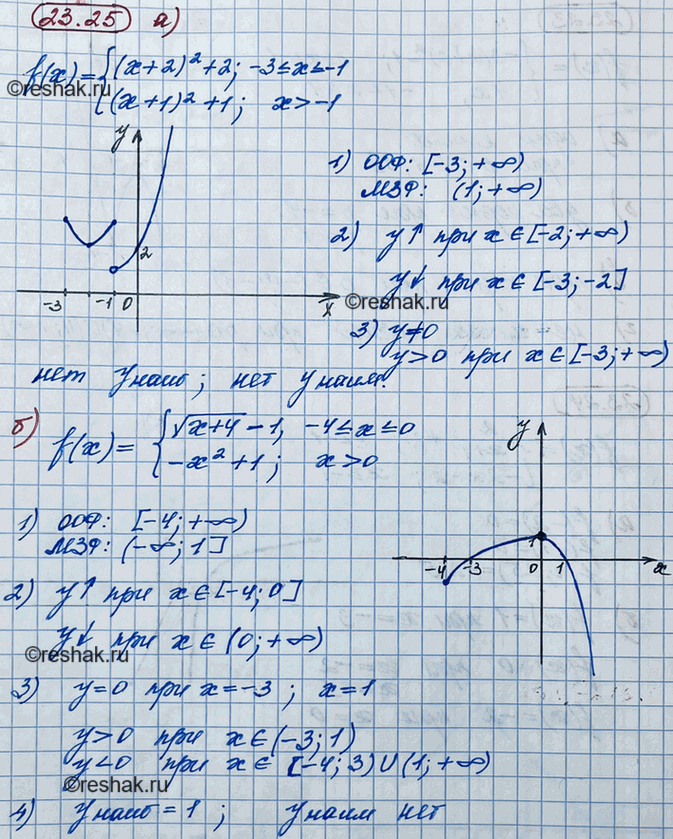 23.25 а)
f(x)= { (x+2)² +2; -3≤x≤-1
(x+1)² +1; x>-1
©reshak.ru
y
1) ООФ: [-3; +∞)
МЗФ: (1; +∞)
2) y↑ при x∈[-2; +∞)
2
y↓ при x∈[-3; -2]
-3 -1 0 x
©reshak.ru
3) y≠0
y>0 при x∈[-3; +∞)
нет yнаиб; нет yнаим.
б)
f(x)= { √x+4 -1, -4≤x≤0
-x² +1; x>0
y
1
-4 -3 0 1 x
1) ООФ: [-4; +∞)
МЗФ: (-∞; 1]
2) y↑ при x∈[-4; 0]
y↓ при x∈(0; +∞)
©reshak.ru
3) y=0 при x=-3; x=1
y>0 при x∈(-3; 1)
y<0 при x∈[-4; 3)∪(1; +∞)
©reshak.ru
4) yнаиб=1; yнаим нет